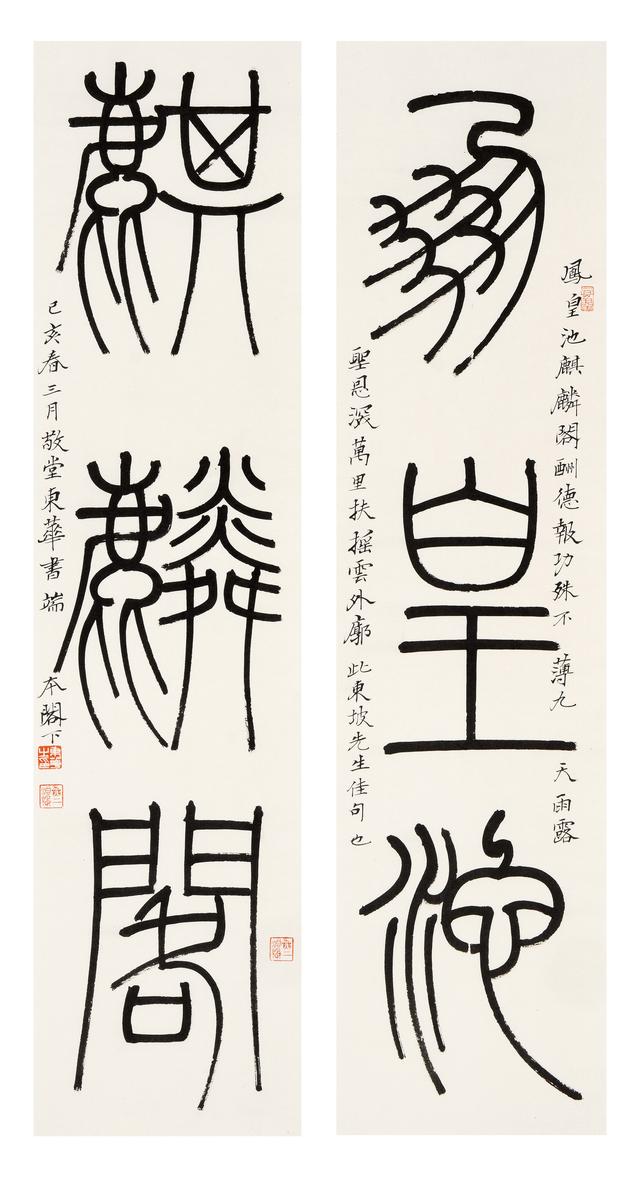 鳳皇池
鳳皇池麒麟閣酬德報功殊不 薄九 天雨露
聖恩深萬里扶搖雲外廓 此東坡先生佳句也
麒麟閣
己亥春三月敬堂東華書端 本閣下